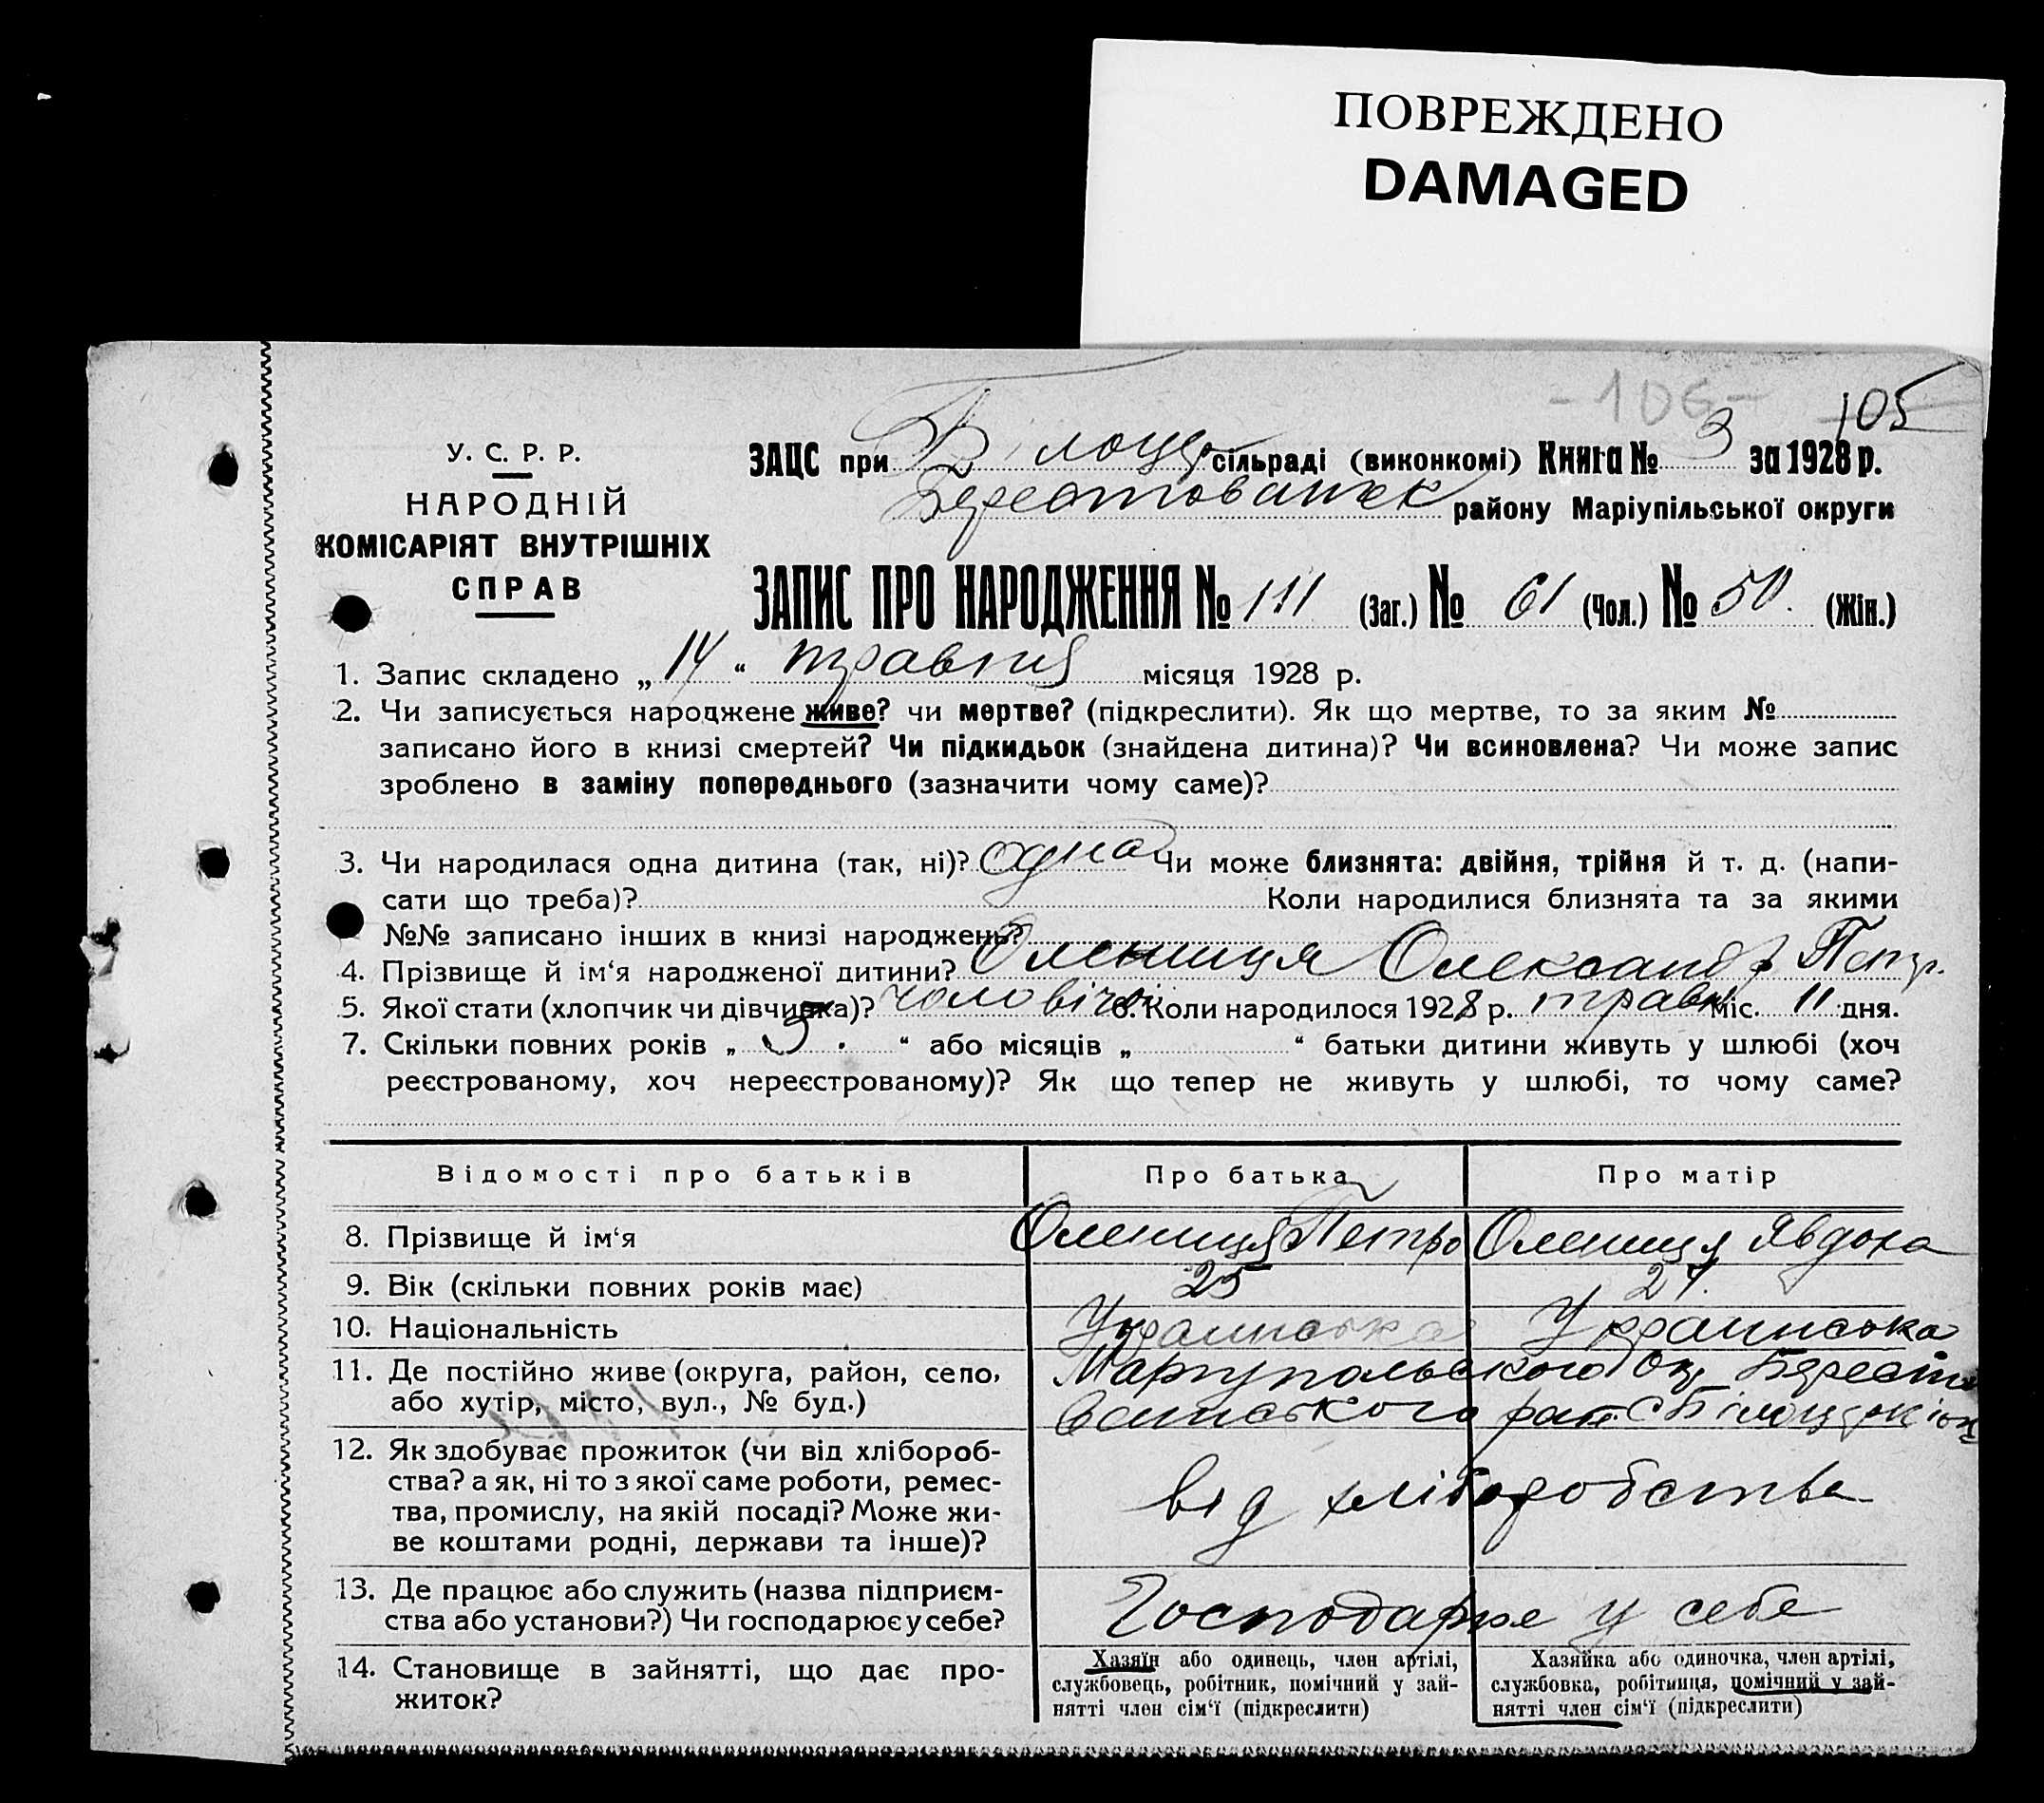 ПОВРЕЖДЕНО
DAMAGED
-106- 105
У. С. Р. Р.
НАРОДНІЙ
КОМІСАРІЯТ ВНУТРІШНІХ
СПРАВ
ЗАЦС при Білоцер сільраді (виконкомі) Книга № 3 за 1928 р.
Берестованск району Маріупільської округи
ЗАПИС ПРО НАРОДЖЕННЯ № 111 (Заг.) № 61 (Чол.) № 50. (Жін.)
1. Запис складено „ 14 “ травня місяця 1928 р.
2. Чи записується народжене живе? чи мертве? (підкреслити). Як що мертве, то за яким №
записано його в книзі смертей? Чи підкидьок (знайдена дитина)? Чи всиновлена? Чи може запис
зроблено в заміну попереднього (зазначити чому саме)?
3. Чи народилася одна дитина (так, ні)? одна Чи може близнята: двійня, трійня й т. д. (напи-
сати що треба)? Коли народилися близнята та за якими
№№ записано інших в книзі народжень?
4. Прізвище й ім‘я народженої дитини? Олениця Олександр Петр.
5. Якої стати (хлопчик чи дівчинка)? чоловічої 6. Коли народилося 1928 р. травн міс. 11 дня.
7. Скільки повних років „ 5 . “ або місяців „ “ батьки дитини живуть у шлюбі (хоч
реєстрованому, хоч нереєстрованому)? Як що тепер не живуть у шлюбі, то чому саме?
Відомості про батьків Про батька Про матір
8. Прізвище й ім‘я Олениця Петро Олениця Явдоха
9. Вік (скільки повних років має) 25 27.
10. Національність Украинська Украинська
11. Де постійно живе (округа, район, село,
або хутір, місто, вул., № буд.)
Мариупольського Окр Бересто
ванського рай. С Білоцерківц
12. Як здобуває прожиток (чи від хлібороб-
ства? а як, ні то з якої саме роботи, ремес-
тва, промислу, на якій посаді? Може жи-
ве коштами родні, держави та інше)?
від хліборобства
13. Де працює або служить (назва підприєм-
ства або установи?) Чи господарює у себе?
Господарює у себе
14. Становище в зайнятті, що дає про-
житок?
Хазяїн або одинець, член артілі,
службовець, робітник, помічний у зай-
нятті член сім‘ї (підкреслити)
Хазяйка або одиночка, член артілі,
службовка, робітниця, помічний у зай-
нятті член сім‘ї (підкреслити)